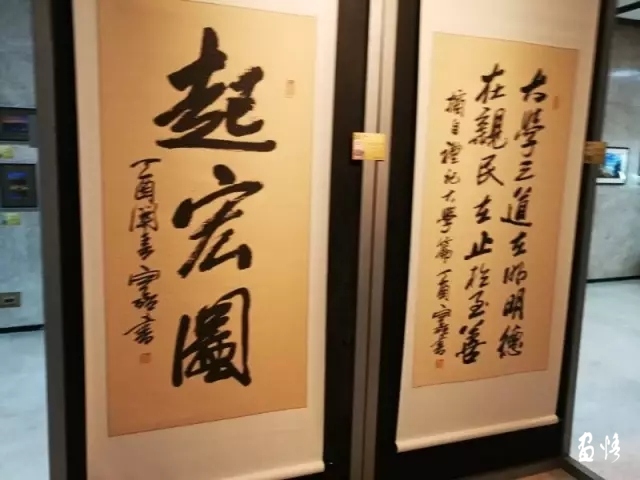 起宏圖
丁酉開春 書
大學之道在明明德
在親民在止於至善
摘自禮記大學篇丁酉 書